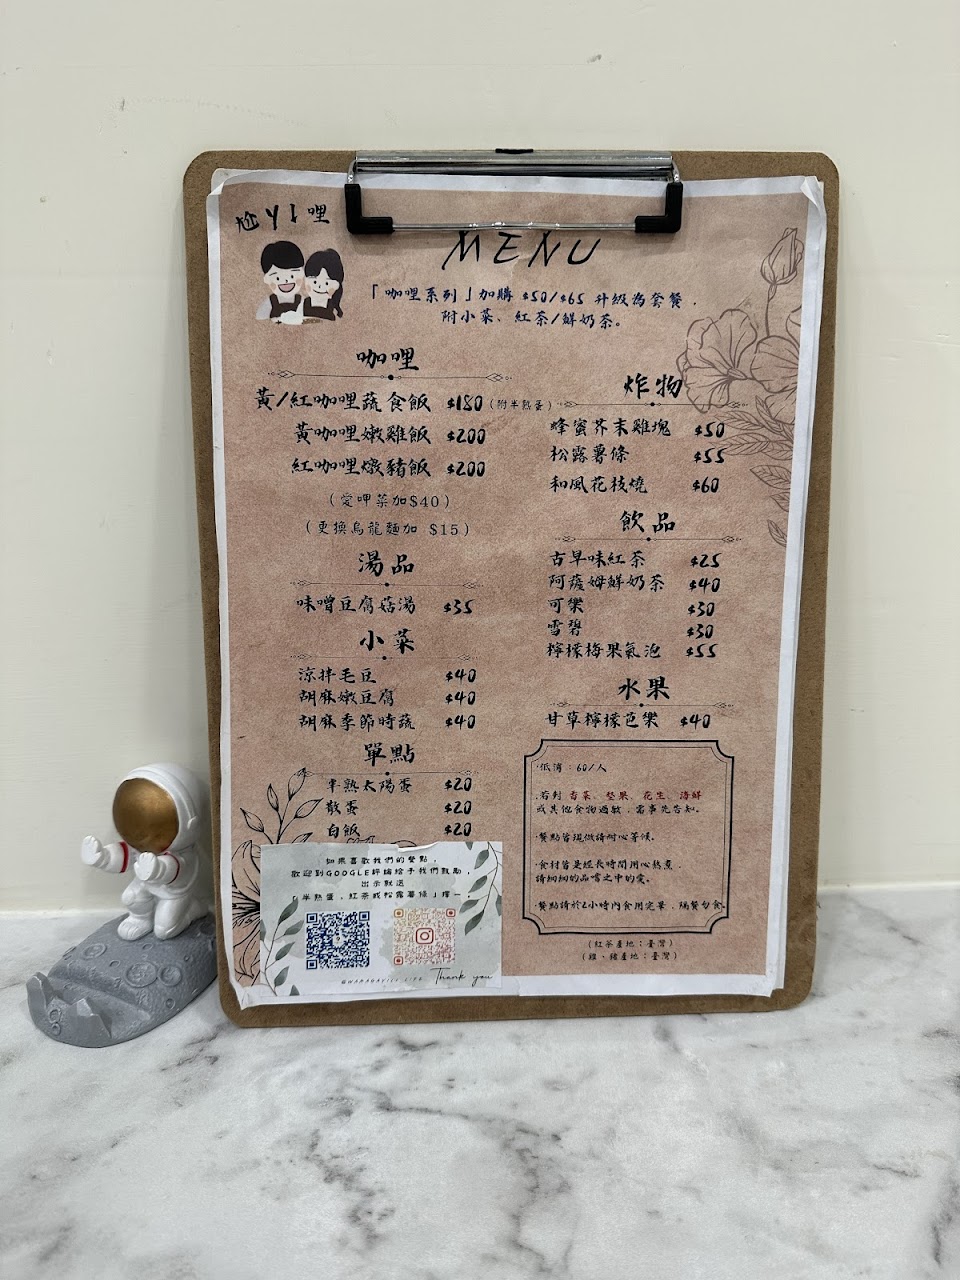 尬ㄚ1哩
MENU
「咖哩系列」加購 $50/$65 升級為套餐，
附小菜、紅茶/鮮奶茶。
咖哩
黃/紅咖哩蔬食飯 $180 (附半熟蛋)
黃咖哩嫩雞飯 $200
紅咖哩燉豬飯 $200
(愛呷菜加$40)
(更換烏龍麵加 $15)
湯品
味噌豆腐菇湯 $35
小菜
涼拌毛豆 $40
胡麻嫩豆腐 $40
胡麻季節時蔬 $40
單點
半熟太陽蛋 $20
散蛋 $20
白飯 $20
炸物
蜂蜜芥末雞塊 $50
松露薯條 $55
和風花枝燒 $60
飲品
古早味紅茶 $25
阿薩姆鮮奶茶 $40
可樂 $30
雪碧 $30
檸檬梅果氣泡 $55
水果
甘草檸檬芭樂 $40
·低消：60/人
·若對 香菜、堅果、花生、海鮮
或其他食物過敏，需事先告知。
·餐點皆現做請耐心等候。
·食材皆是經長時間用心熬煮，
請細細的品嚐之中的愛。
·餐點請於2小時內食用完畢，隔餐勿食
(紅茶產地：臺灣)
(雞、豬產地：臺灣)
如果喜歡我們的餐點，
歡迎到GOOGLE評論給予我們鼓勵，
出示就送
「半熟蛋，紅茶或松露薯條」擇一
Thank you